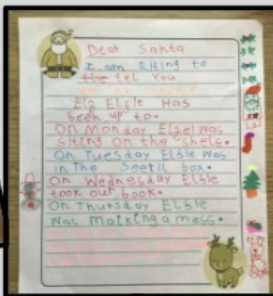 Dear Santa
I am riting to
the tel You
Elf Elsie Has
been up to.
On Monday Elsei was
siting on the shelf.
On Tuesday Elsie was
in the Seetil box.
On Wednesday Elsie
took our book.
On Thursday Elsie
was makeing a mess.